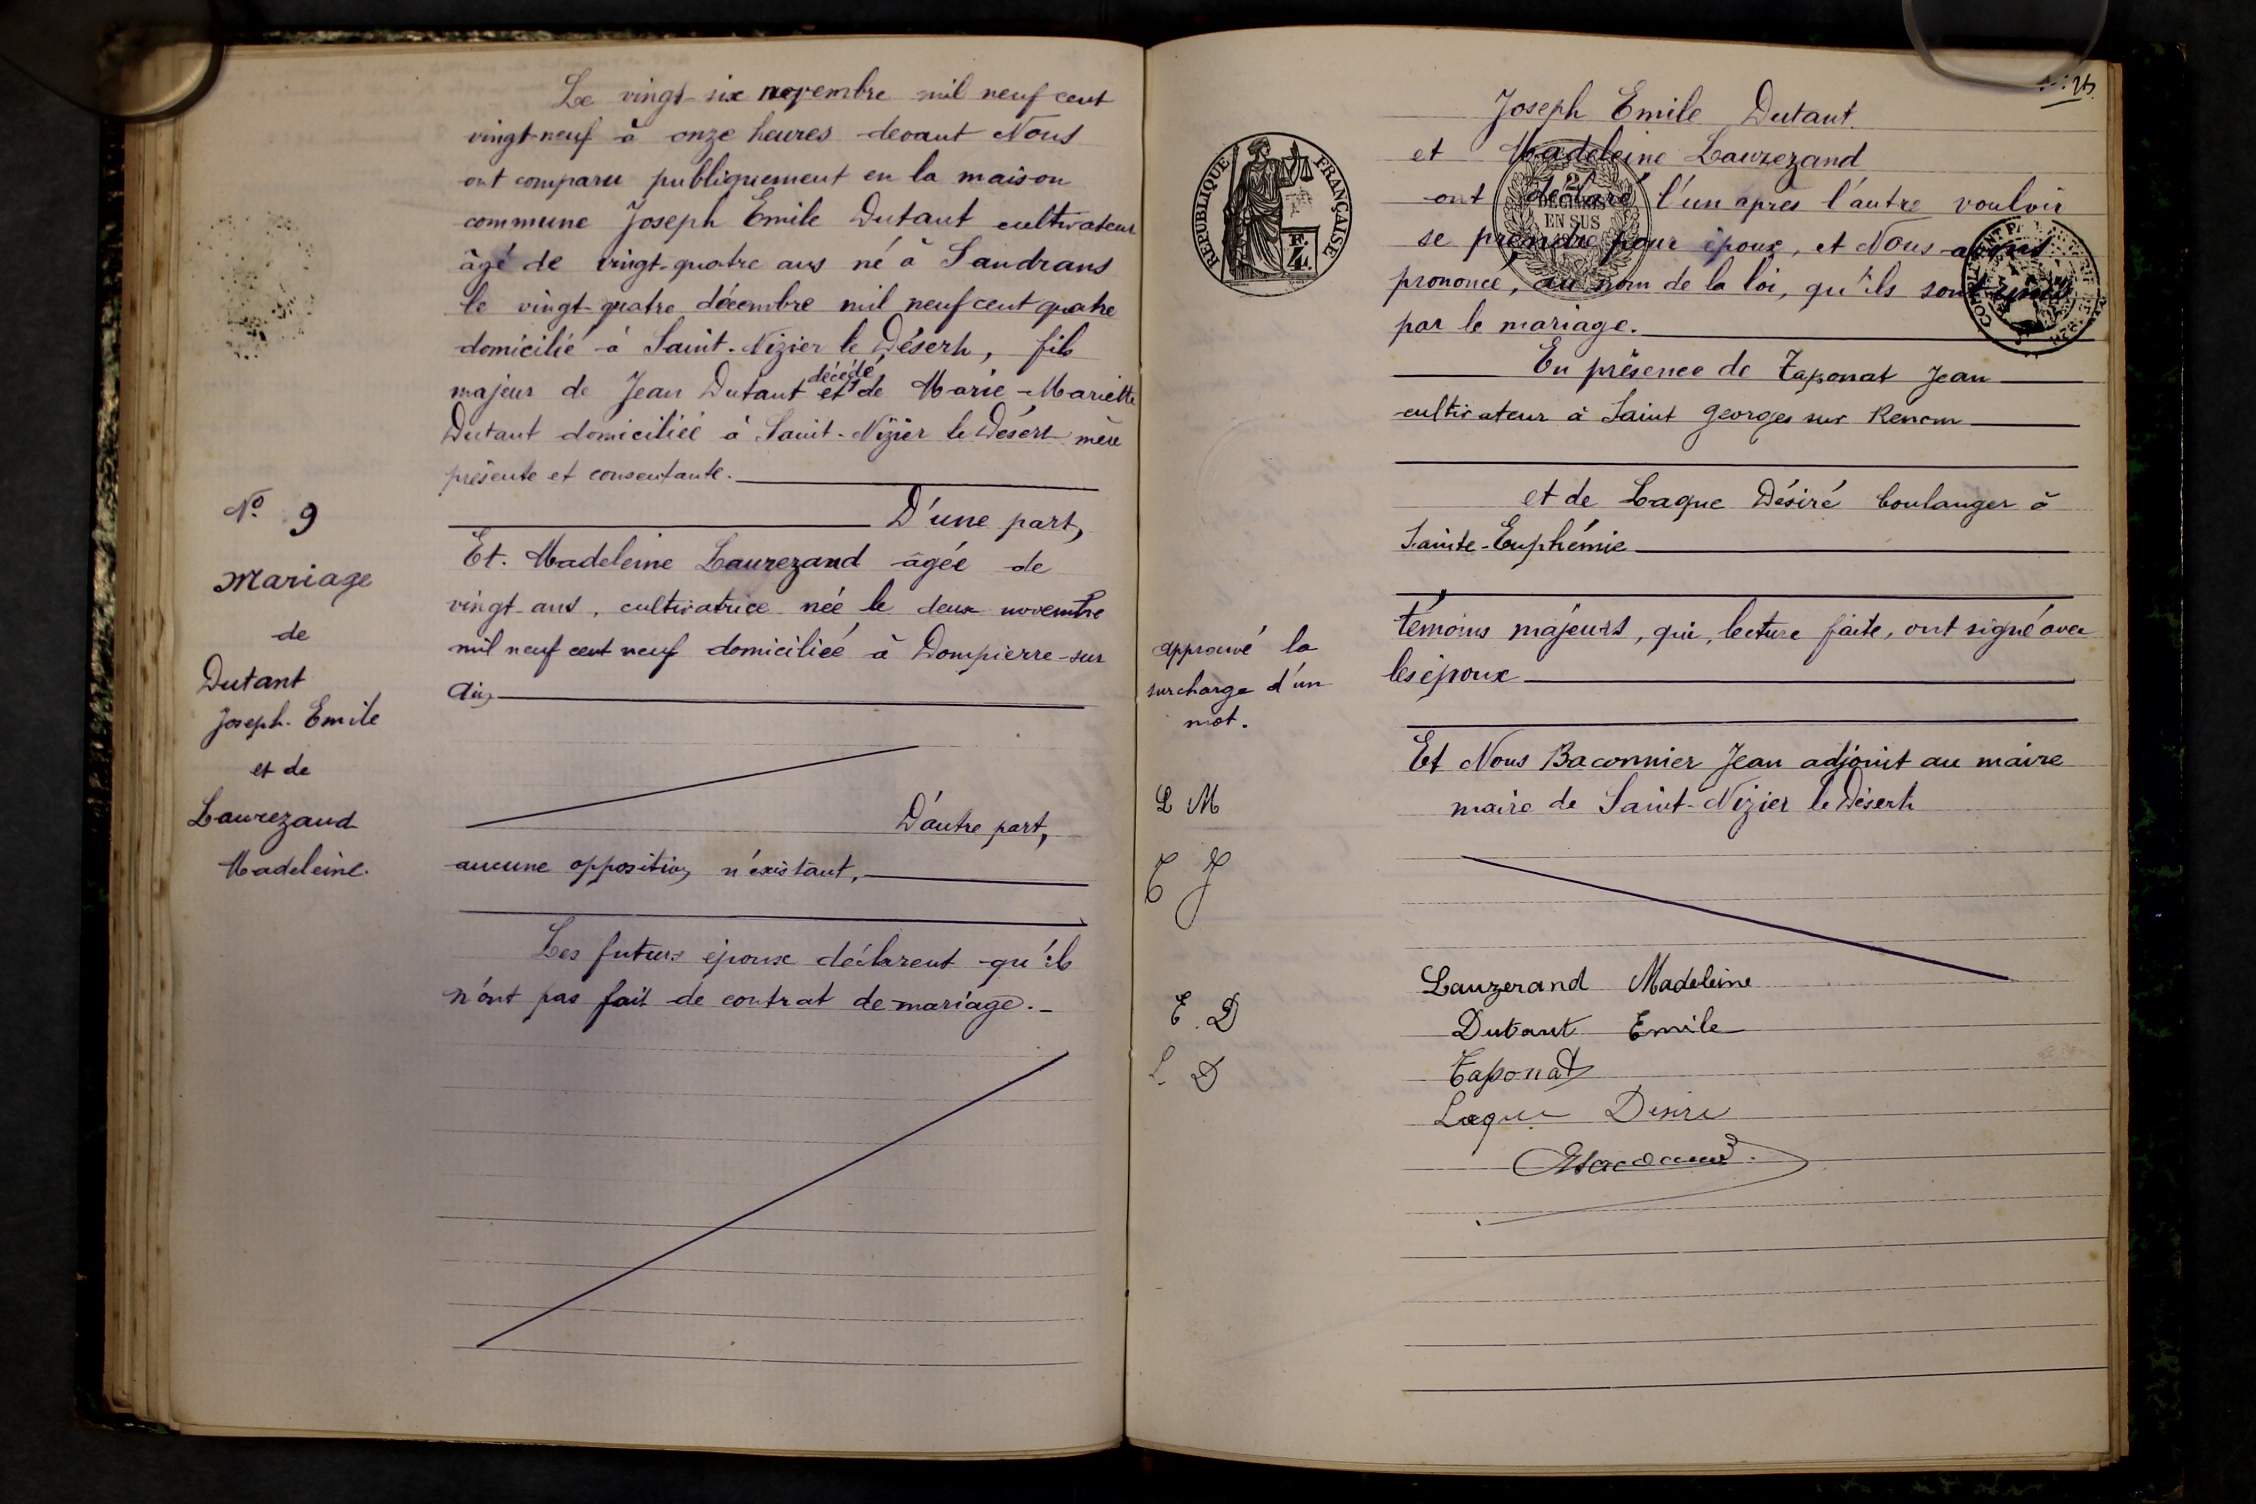 Le vingt-six novembre mil neuf cent
vingt-neuf à onze heures devant Nous
ont comparu publiquement en la maison
commune Joseph Emile Dutant cultivateur
âgé de vingt-quatre ans né à Sandrans
le vingt-quatre décembre mil neuf cent quatre
domicilié à Saint-Nizier le Désert, fils
décédé
majeur de Jean Dutant et de Marie-Mariette
Dutant domiciliée à Saint-Nizier le Désert mère
présente et consentante.
D'une part,
Et. Madeleine Laurezand âgée de
vingt ans, cultivatrice née le deux novembre
mil neuf cent neuf domiciliée à Dompierre-sur
Ain
D'autre part,
aucune opposition n'existant,
Les futurs époux déclarent qu'ils
n'ont pas fait de contrat de mariage.-
No. 9
Mariage
de
Dutant
Joseph-Emile
et de
Laurezand
Madeleine.
Joseph Emile Dutant.
et Madeleine Laurezand
ont déclaré l'un après l'autre vouloir
se prendre pour époux, et Nous avons
prononcé, au nom de la loi, qu'ils sont unis
par le mariage.
En présence de Taponat Jean
cultivateur à Saint Georges sur Renom
et de Laque Désiré boulanger à
Sainte-Euphémie
témoins majeurs, qui, lecture faite, ont signé avec
les époux
Et Nous Baconnier Jean adjoint au maire
maire de Saint-Nizier le Désert
Lauzerand Madeleine
Dutant Emile
Taponat
Laque Desire
approuvé la
surcharge d'un
mot.
L M
T J
E. D
L. D
REPUBLIQUE FRANÇAISE
2
DÉCIMES
EN SUS